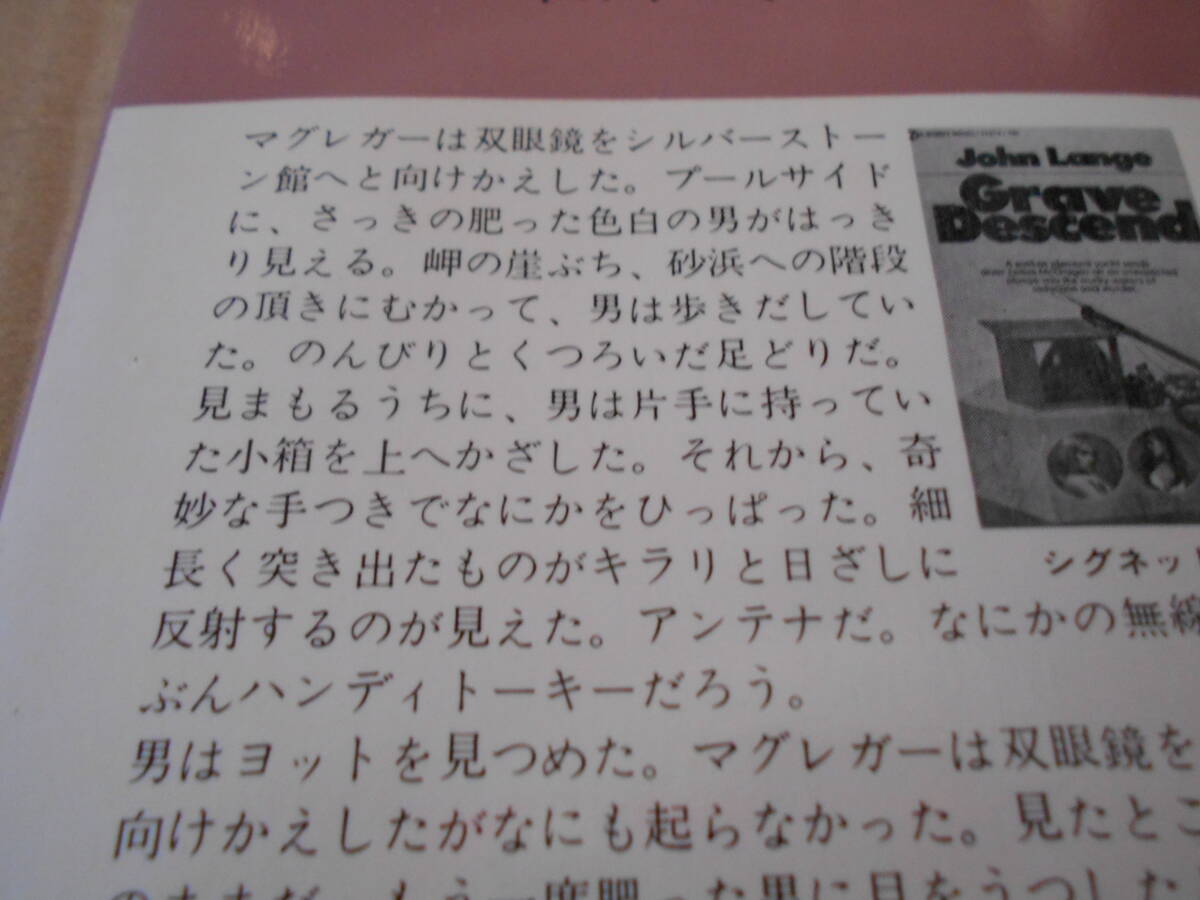 マグレガーは双眼鏡をシルバーストー
ン館へと向けかえした。プールサイド
に、さっきの肥った色白の男がはっき
り見える。岬の崖ぶち、砂浜への階段
の頂きにむかって、男は歩きだしてい
た。のんびりとくつろいだ足どりだ。
見まもるうちに、男は片手に持ってい
た小箱を上へかざした。それから、奇
妙な手つきでなにかをひっぱった。細
長く突き出たものがキラリと日ざしに
反射するのが見えた。アンテナだ。なにかの無線
ぶんハンディトーキーだろう。
男はヨットを見つめた。マグレガーは双眼鏡を
向けかえしたがなにも起らなかった。見たとこ
のままだ。もう一度肥った男に目をうつした
John Lange
Grave
Descend
シグネット